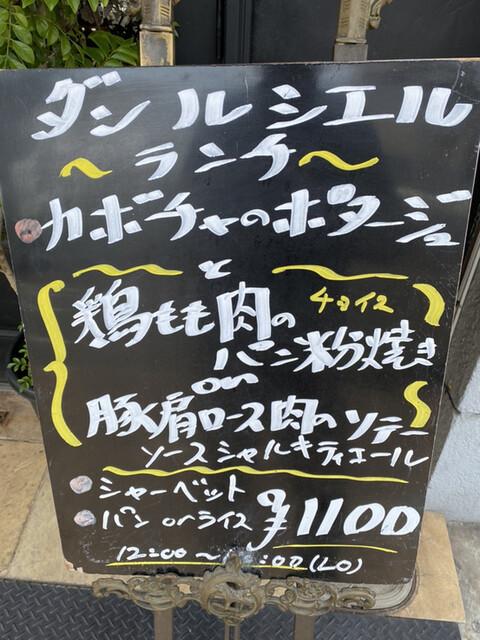 ダン ル シエル
～ランチ～
カボチャのポタージュ
と
チョイス
鶏もも肉の
パン粉焼き
or
豚肩ロース肉のソテー
ソースシャルキティエール
シャーベット
パン orライス
¥1100
12:00～ :00(LO)